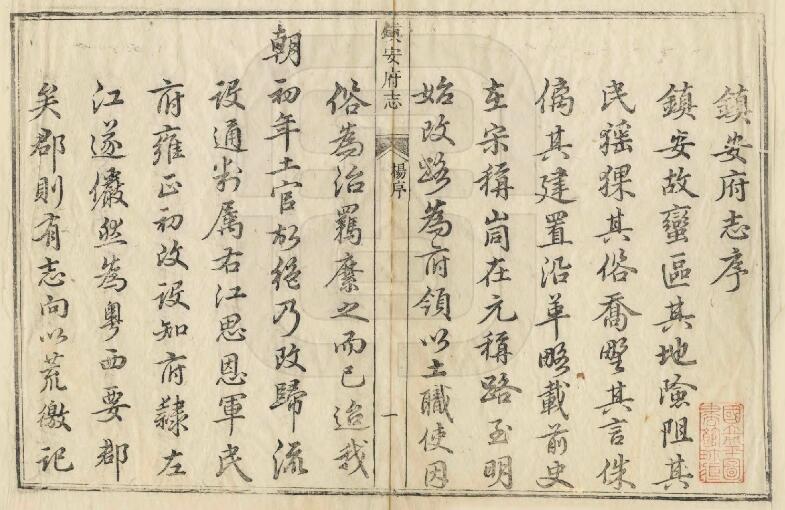 鎮安府志序
鎮安故蠻區其地險阻其
民猺猓其俗喬野其言侏
僪其建置沿革略載前史
在宋稱峝在元稱路至明
始改路為府領以土職使因
鎮安府志
楊序
一
俗為治羈縻之而已迨我
朝初年土官故絕乃改歸流
設通判屬右江思恩軍民
府雍正初改設知府隸左
江遂儼然為粵西要郡
矣郡則有志向以荒徼記